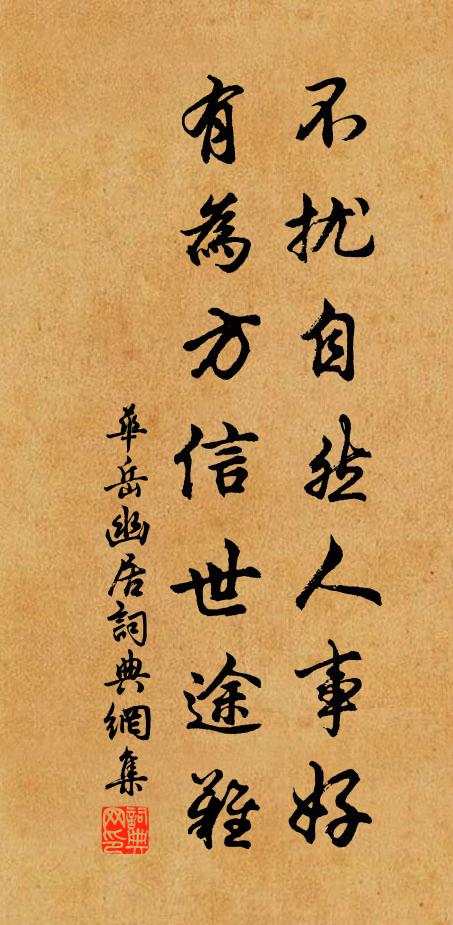 不扰自然人事好
有為方信世途難
華岳幽居詞典網集
詞典网印